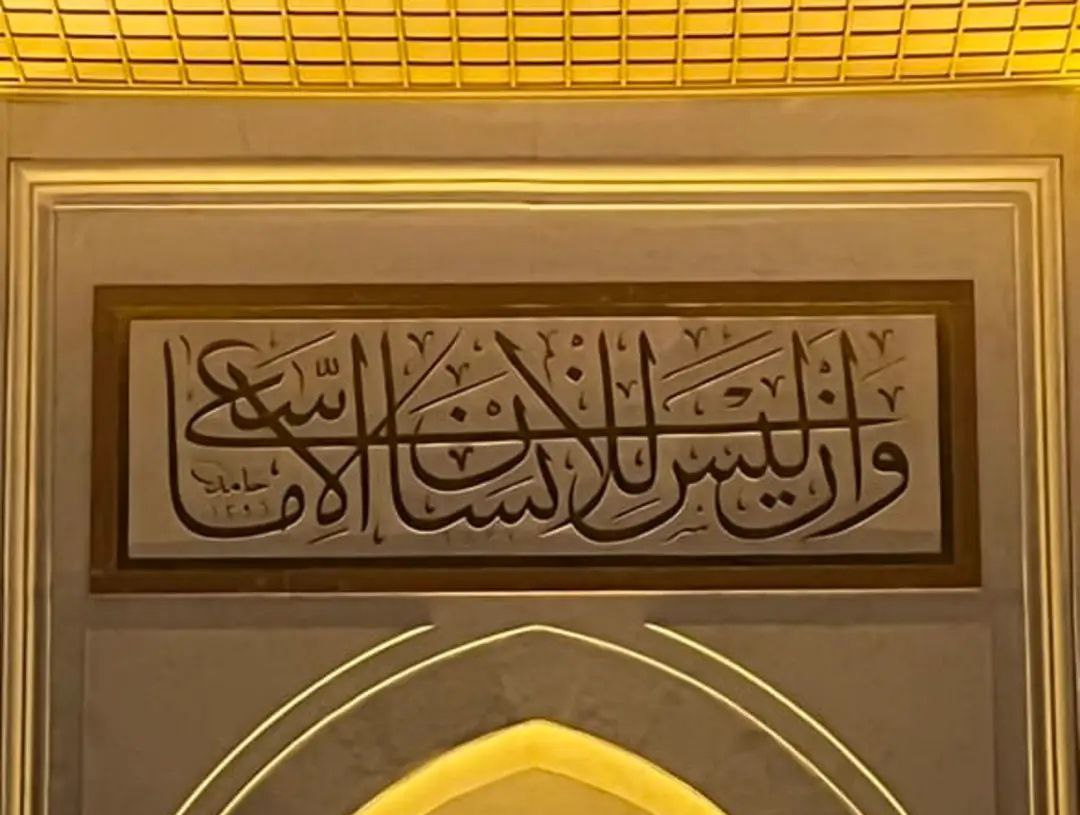 وان ليس للانسان الا ما سعى
حامد
١٣٩٦